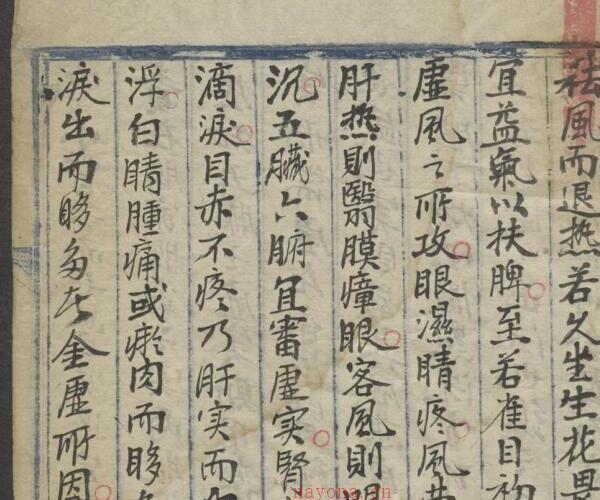 祛風而退热若久坐生花
宜益氣以扶脾至若雀目初
虚風之所攻眼濕睛疼風
肝热則翳膜瘴眼客風則
沉五臟六腑宜審虚实腎
滴淚目赤不疼乃肝实而
浮白睛腫痛或瘀肉而眵
淚出而眵多者金虚所因
nayona.cn